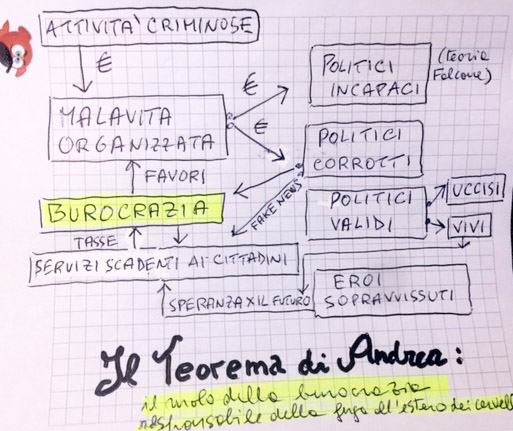 ATTIVITA' CRIMINOSE
€
POLITICI
INCAPACI
(teoria
Falcone)
€
MALAVITA
ORGANIZZATA
€
POLITICI
CORROTTI
FAVORI
BUROCRAZIA
FAKE NEWS
POLITICI
VALIDI
UCCISI
VIVI
TASSE
SERVIZI SCADENTI AI CITTADINI
EROI
SOPRAVVISSUTI
SPERANZA X IL FUTURO
Il Teorema di Andrea:
il ruolo della burocrazia
responsabile della fuga all'estero dei cervell